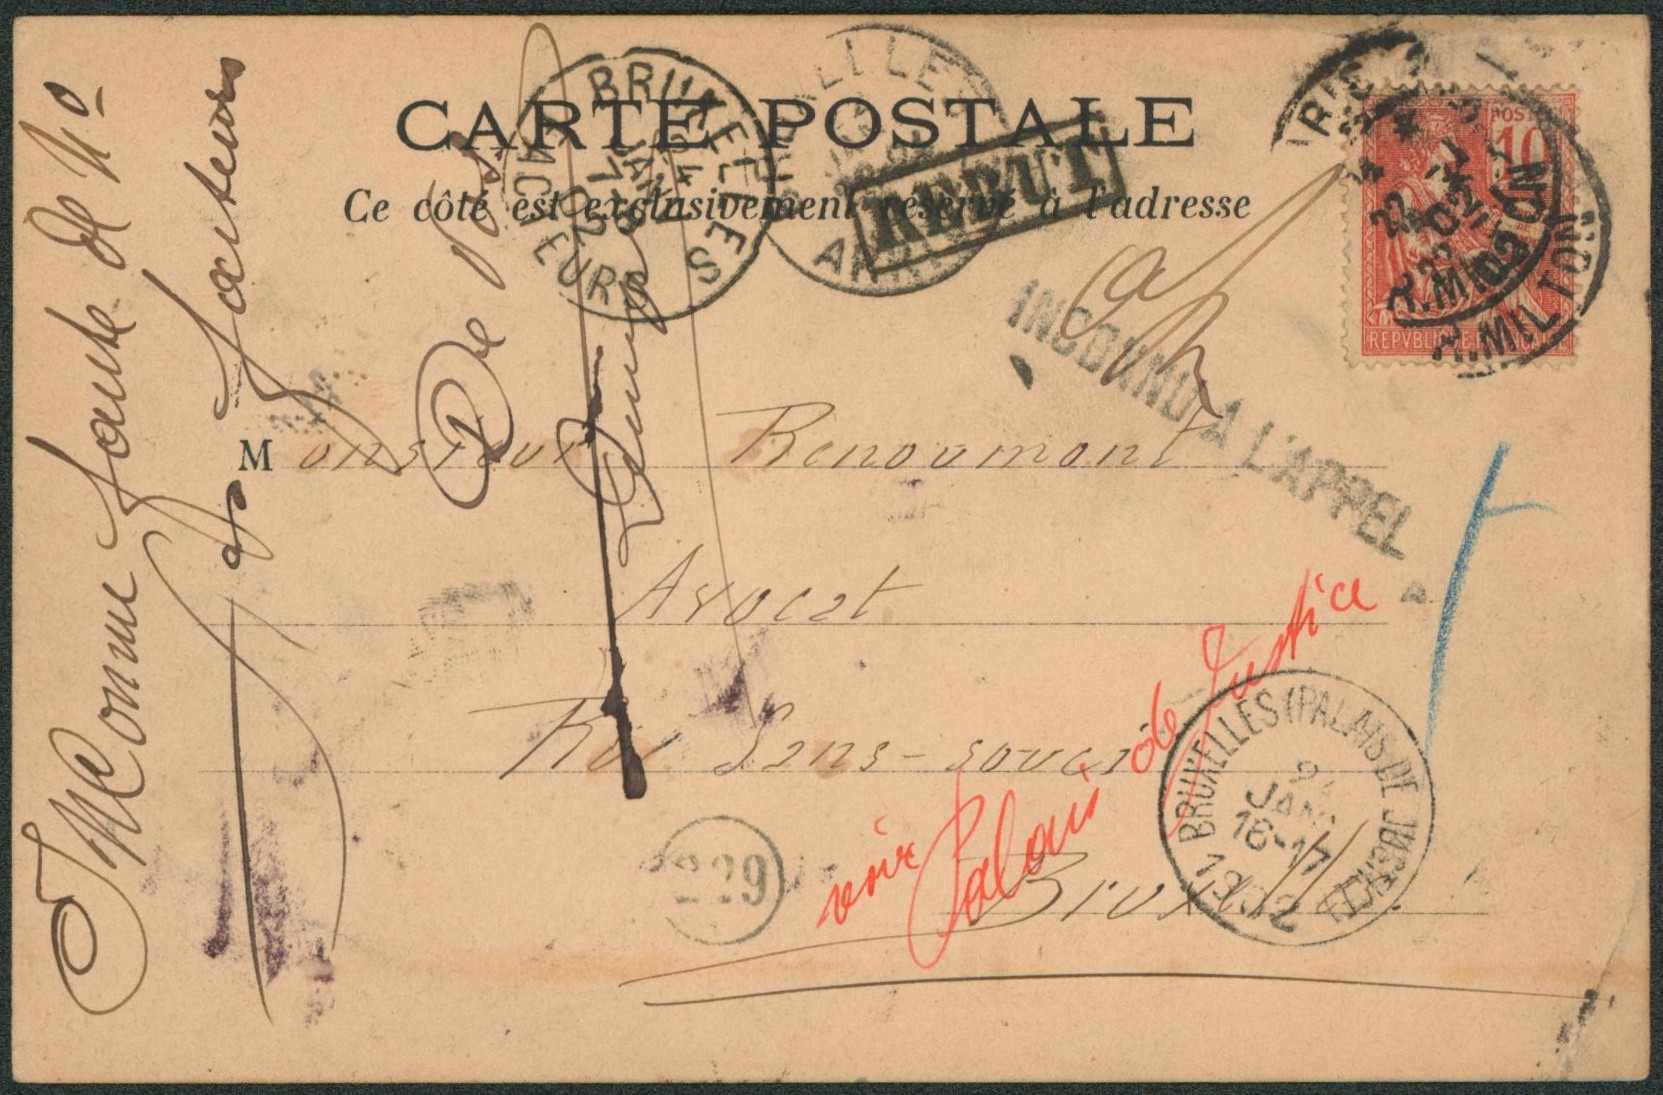 CARTE POSTALE
Ce côté est exclusivement réservé à l'adresse
BRUXELLES
24
JANV
02
FACTEURS
BRUXELLES
REBUT
POSTES
10
REPVBLIQUE FRANÇAISE
R. MILTON
R. MILTON
INCONNU A L'APPEL
Monsieur Renoumont
Avocat
Rue Sans-souci
Brux
voir Palais de Justice
BRUXELLES (PALAIS DE JUSTICE)
24
JANV
16-17
1902
229
Inconnu faute de No
facteurs
De